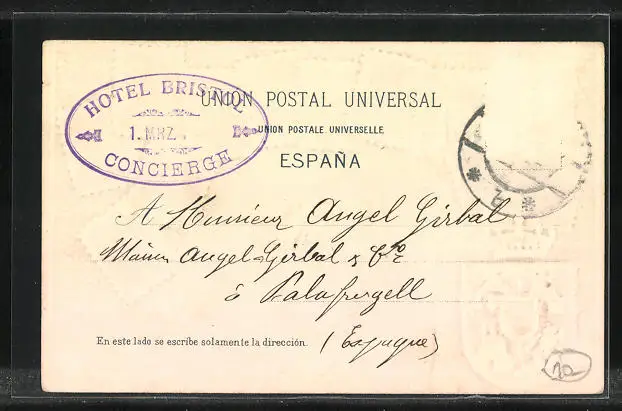 HOTEL BRISTOL
1. MRZ.
CONCIERGE
UNION POSTAL UNIVERSAL
UNION POSTALE UNIVERSELLE
ESPAÑA
A Monsieur Angel Girbal
Maison Angel Girbal & Cie
à Palafrugell
(Espagne)
En este lado se escribe solamente la dirección.
20